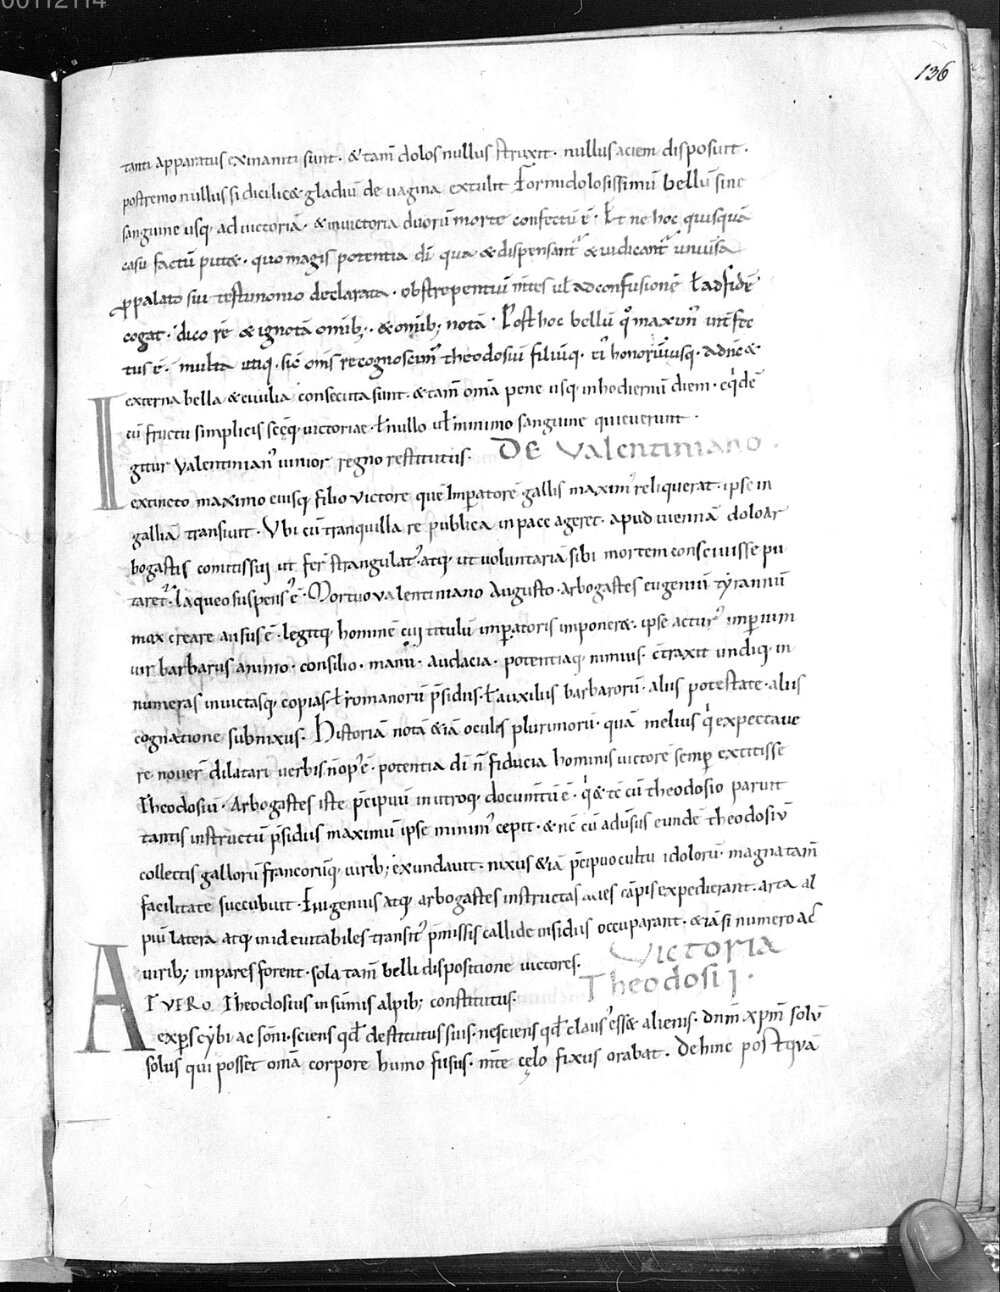 00112114
136
tanti apparatus exinaniti sunt · & tam̄ dolos nullus struxit · nullus aciem disposuit ·
postremo nullus si dici lic& gladiū de uagina extulit Formidolosissimū bellū sine
sanguine usq; ad uictoriā · & inuictoria duorū morte confectū ē · Et ne hoc quisquā
casu factū put& · quo magis potentia dī qua & dispensant᷑ & iudicant᷑ uniuīsa
ꝓpalato sui testimonio declarata · obstrepentiū m̄tes ul̄ ad confusionē ł ad fidē
cogat · dico rē & ignotā omīb; · & omīb; notā · Post hoc bellū q̊ maxim᷒ int̄fec
tus ē · multa utiq; sic om̄s recognoscim᷒ theodosiū filiūq; ei᷒ honoriū usq; ad n̄c &
externa bella & ciuilia consecuta sunt · & tam̄ om̄a pene usq; in hodiernū diem · eq̇dē
cū fructu simplicis sc̄ęq; uictoriae · ł nullo ul̄ minimo sanguine quieuerunt ·
Igitur Valentinian᷒ iunior regno restitutus · DE Valentiniano ·
extincto maximo eiusq; filio Victore quē Imperatorē gallis maxim᷒ reliquerat · ipse in
galliā transiuit · Vbi cū tranquilla re publica in pace ager& · apud uiennā dolo ar
bogastis comitis sui ut fer̄ strangulat᷒ · atq; ut uoluntariā sibi mortem consciuisse pu
taret᷑ · laqueo suspens᷒ ē · Mortuo valentiniano Augusto · arbogastes eugeniū tyrannū
max creare ausus ē · legitq; hominē cui titulū imperatoris imponer& · ipse actur᷒ imperium
uir barbarus animo · consilio · manu · audacia · potentiaq; nimius · c̄traxit undiq; in
numeras inuictasq; copias · ł romanorū p̄sidiis · ł auxiliis barbarorū · aliis potestate · aliis
cognatione subnixus · Historiā notā &iā oculis plurimorū · quā melius q̇ expectaue
re nouer̄ dilatari uerbis n̄ op᷒ ē · potentia dī n̄ fiducia hominis uictorē semp̱ extitisse
Theodosiū · Arbogastes iste p̄cipuū in utroq; documtū ē · q̇ & tc̄ cū theodosio paruit
tantis instructū p̄sidiis maximū ipse minim᷒ cepit · & nc̄ cū aduīsus eundē theodosiū
collectis gallorū francorūq; uirib; exundauit · nixus &iā p̄cipuo cultu idolorū · magna tam̄
facilitate succubuit · Eugenius atq; arbogastes instructas acies cāpis expedierant · arta al
piū latera atq; ineuitabiles transit᷒ p̄missis callide insidiis occuparant · &iā si numero ac
uirib; impares forent · sola tam̄ belli dispositione uictores · Victoria
AT VERO Theodosius in sūmis alpib; constitutus · Theodosii ·
expers cybi ac somni · sciens qd̄ destitutus suis · nesciens qd̄ claus᷒ ess& alienis · dn̄m xp̄m solū
solus qui posset om̄a corpore humo fusus · m̄te cęlo fixus orabat · Dehinc postquā